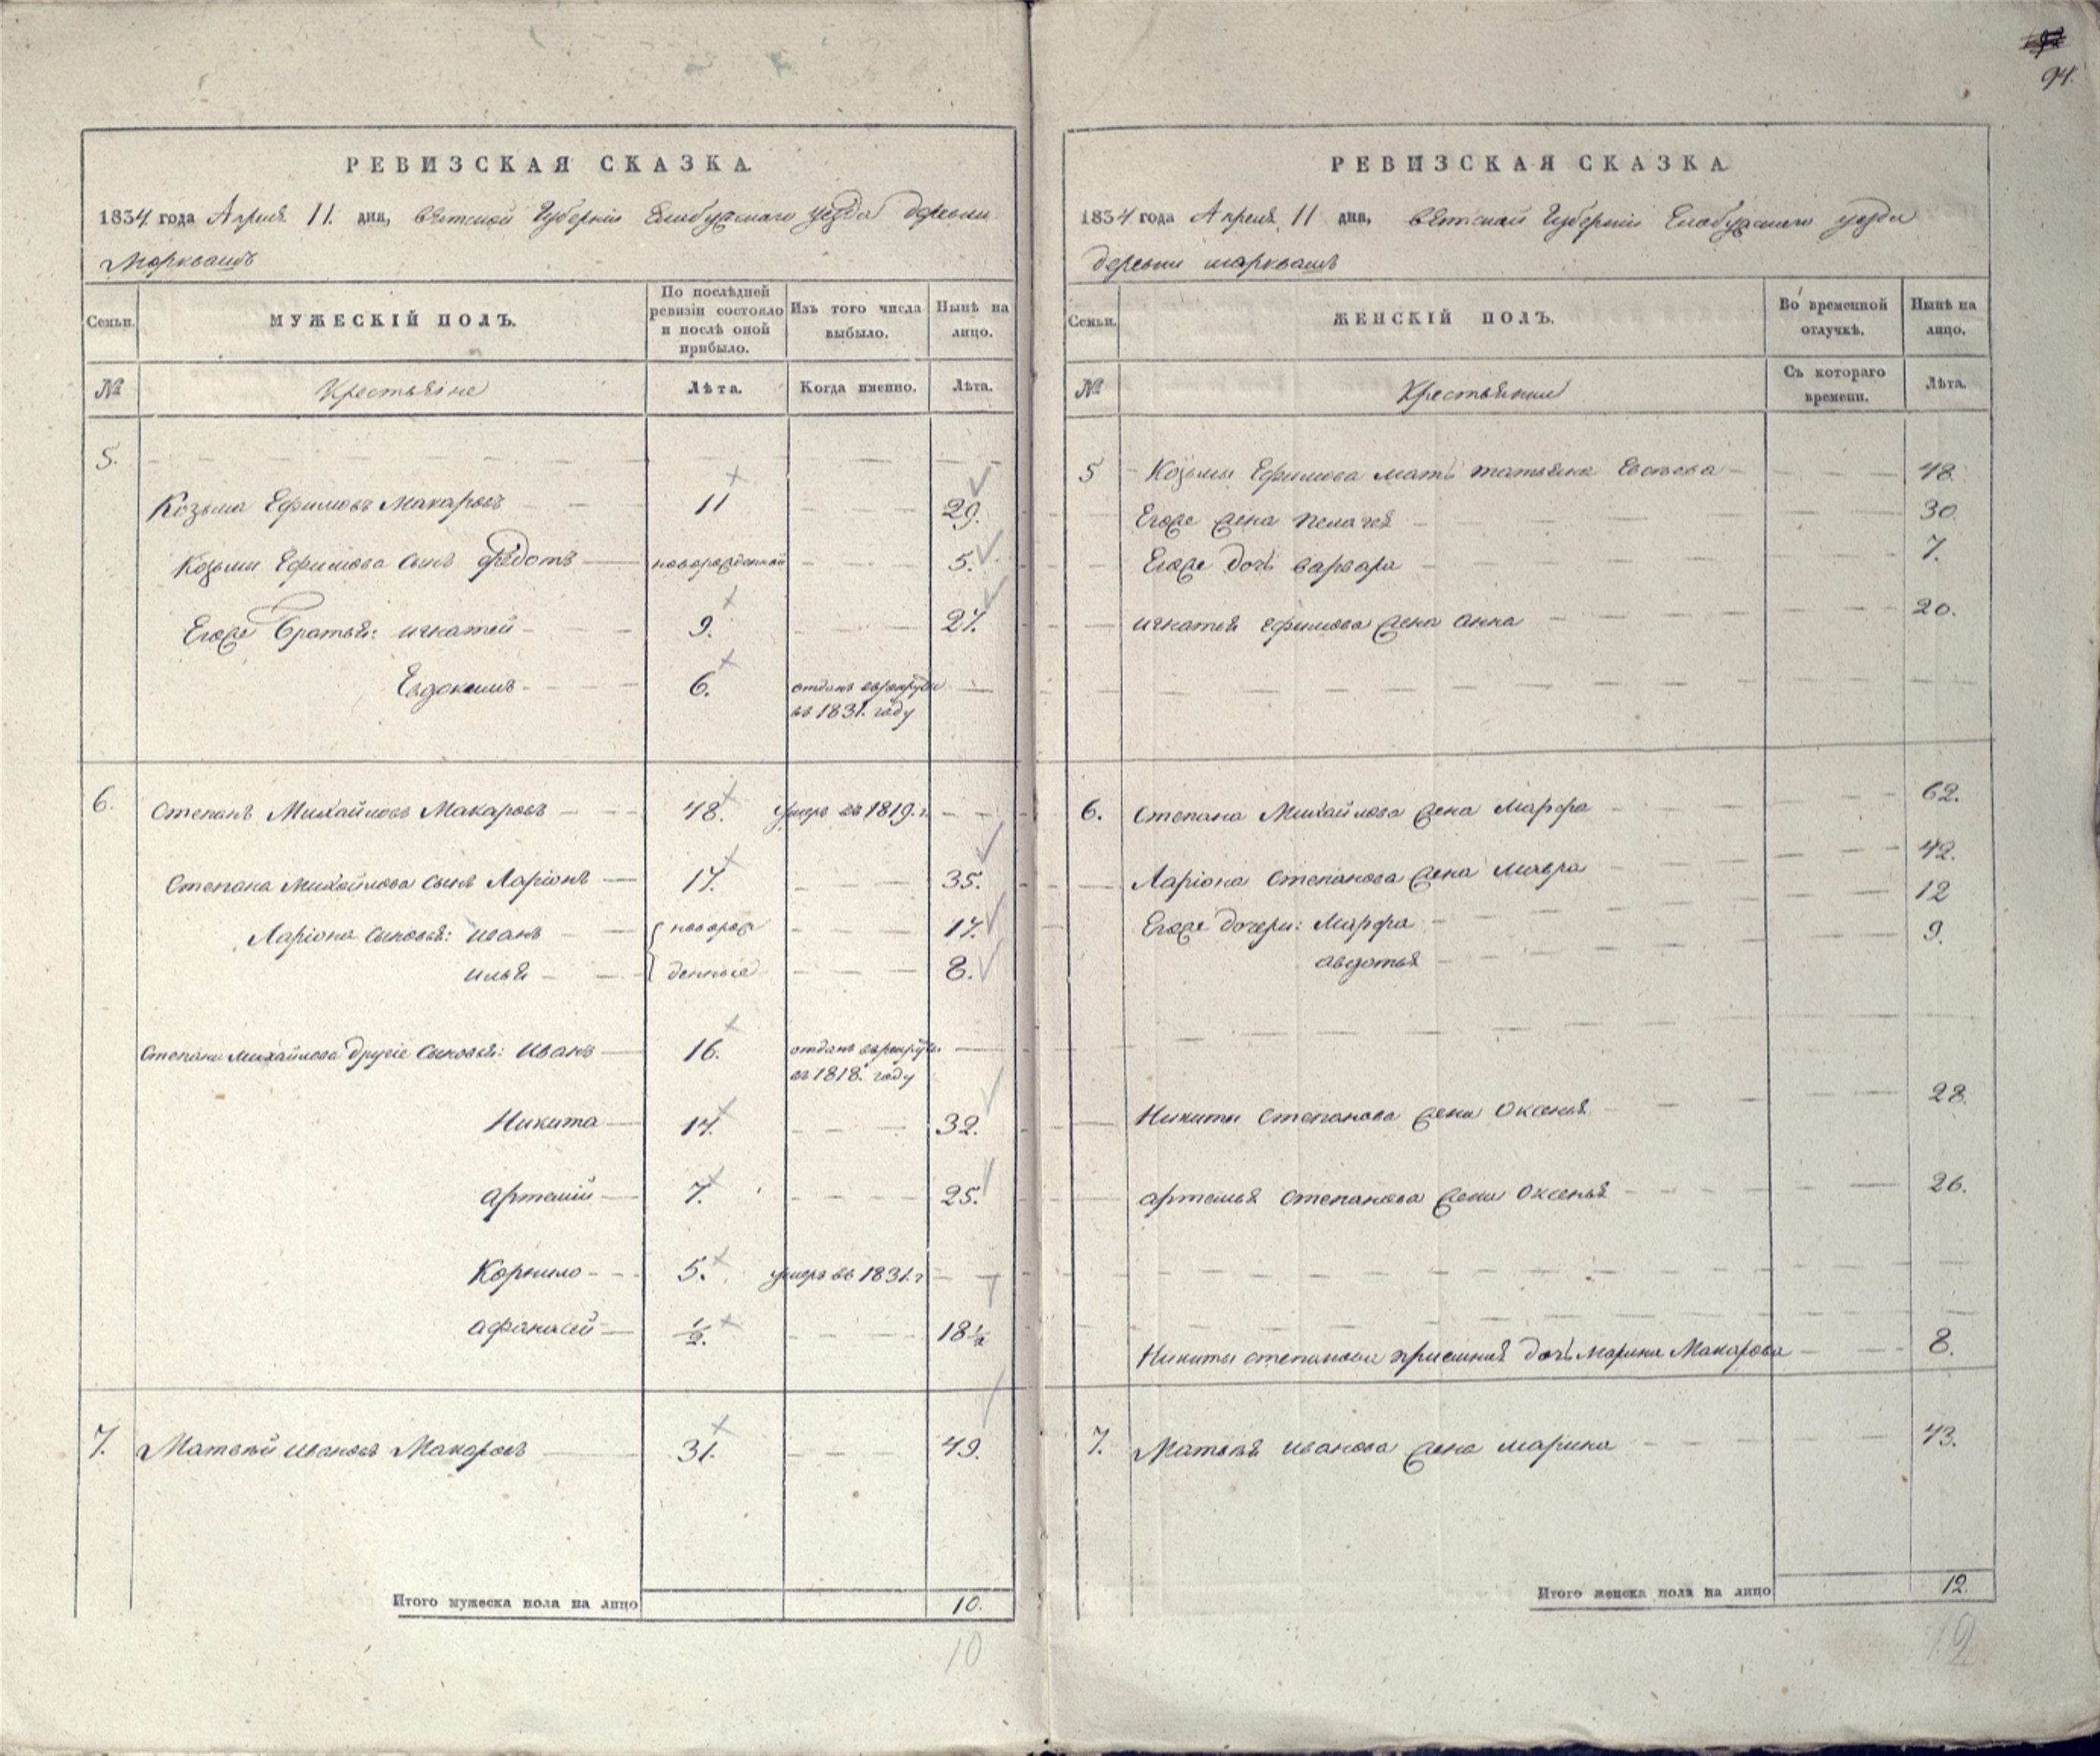 94.
РЕВИЗСКАЯ СКАЗКА.
1834 года Апреля 11 дня, Вятской Губернiи Елабужскаго уезда деревни
Морквашъ
Семьи.
МУЖЕСКIЙ ПОЛЪ.
По послѣдней ревизiи состояло и послѣ оной прибыло.
Изъ того числа выбыло.
Нынѣ на лицо.
№
Крестьяне
Лѣта.
Когда именно.
Лѣта.
5.
Козьма Ефимовъ Макаровъ 11 29.
Козьмы Ефимова сынъ Федотъ новорожденной 5.
Егоже братья: игнатей 9. 27.
Евдокимъ 6. отданъ врекруты
въ 1831. году
6. Степанъ Михайловъ Макаровъ 48. умеръ въ 1819. г.
Степана Михайлова сынъ Ларiонъ 17. 35.
Ларiона сыновья: иванъ новорож 17.
илья денные 8.
Степана Михайлова другiе сыновья: иванъ 16. отданъ врекруты
въ 1818. году
Никита 14. 32.
артемiй 7. 25.
Корнило 5. умеръ въ 1831. г
афанасей 1/2. 18 1/2
7. Матвѣй ивановъ Макаровъ 31. 49.
Итого мужеска пола на лицо 10.
10
РЕВИЗСКАЯ СКАЗКА
1834 года Апреля 11 дня, Вятской Губернiи Елабужскаго уезда
деревни морквашъ
Семьи.
ЖЕНСКIЙ ПОЛЪ.
Во временной отлучкѣ.
Нынѣ на лицо.
№
Крестьянки
Съ котораго времени.
Лѣта.
5 Козьмы Ефимова мать татьяна 48
Егоже жена пелагея 30.
Егоже дочь варвара 7.
игнатья ефимова жена анна 20.
6. Степана Михайлова жена Марфа 62.
Ларiона степанова жена мавра 42.
Егоже дочери: Марфа 12
авдотья 9.
Никиты степанова жена Оксенья 28
артемья степанова жена Оксенья 26.
Никиты степанова прiемная дочь марина Макарова 8.
7. Матвея иванова жена марина 43.
Итого женска пола на лицо 12.
12